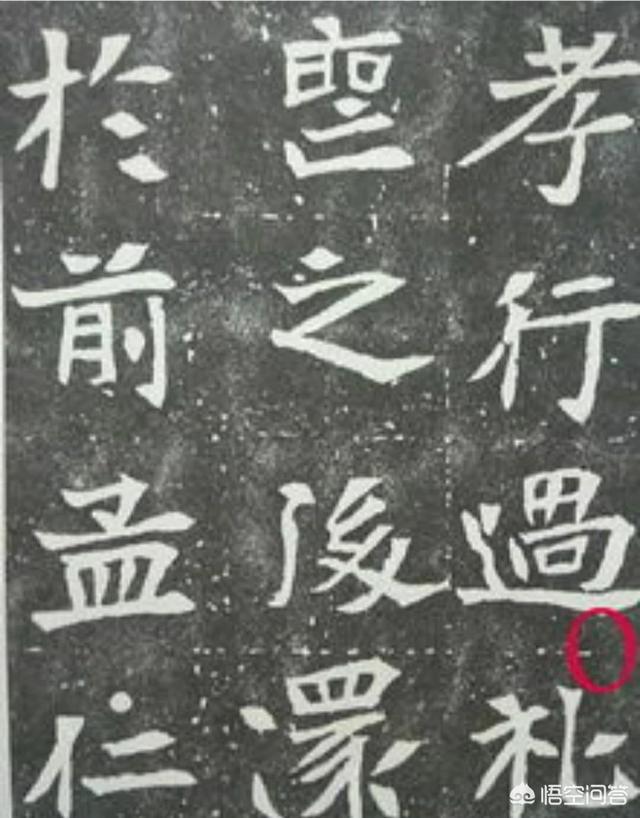 孝行過礼
聖之後
於前孟仁
悟空问答